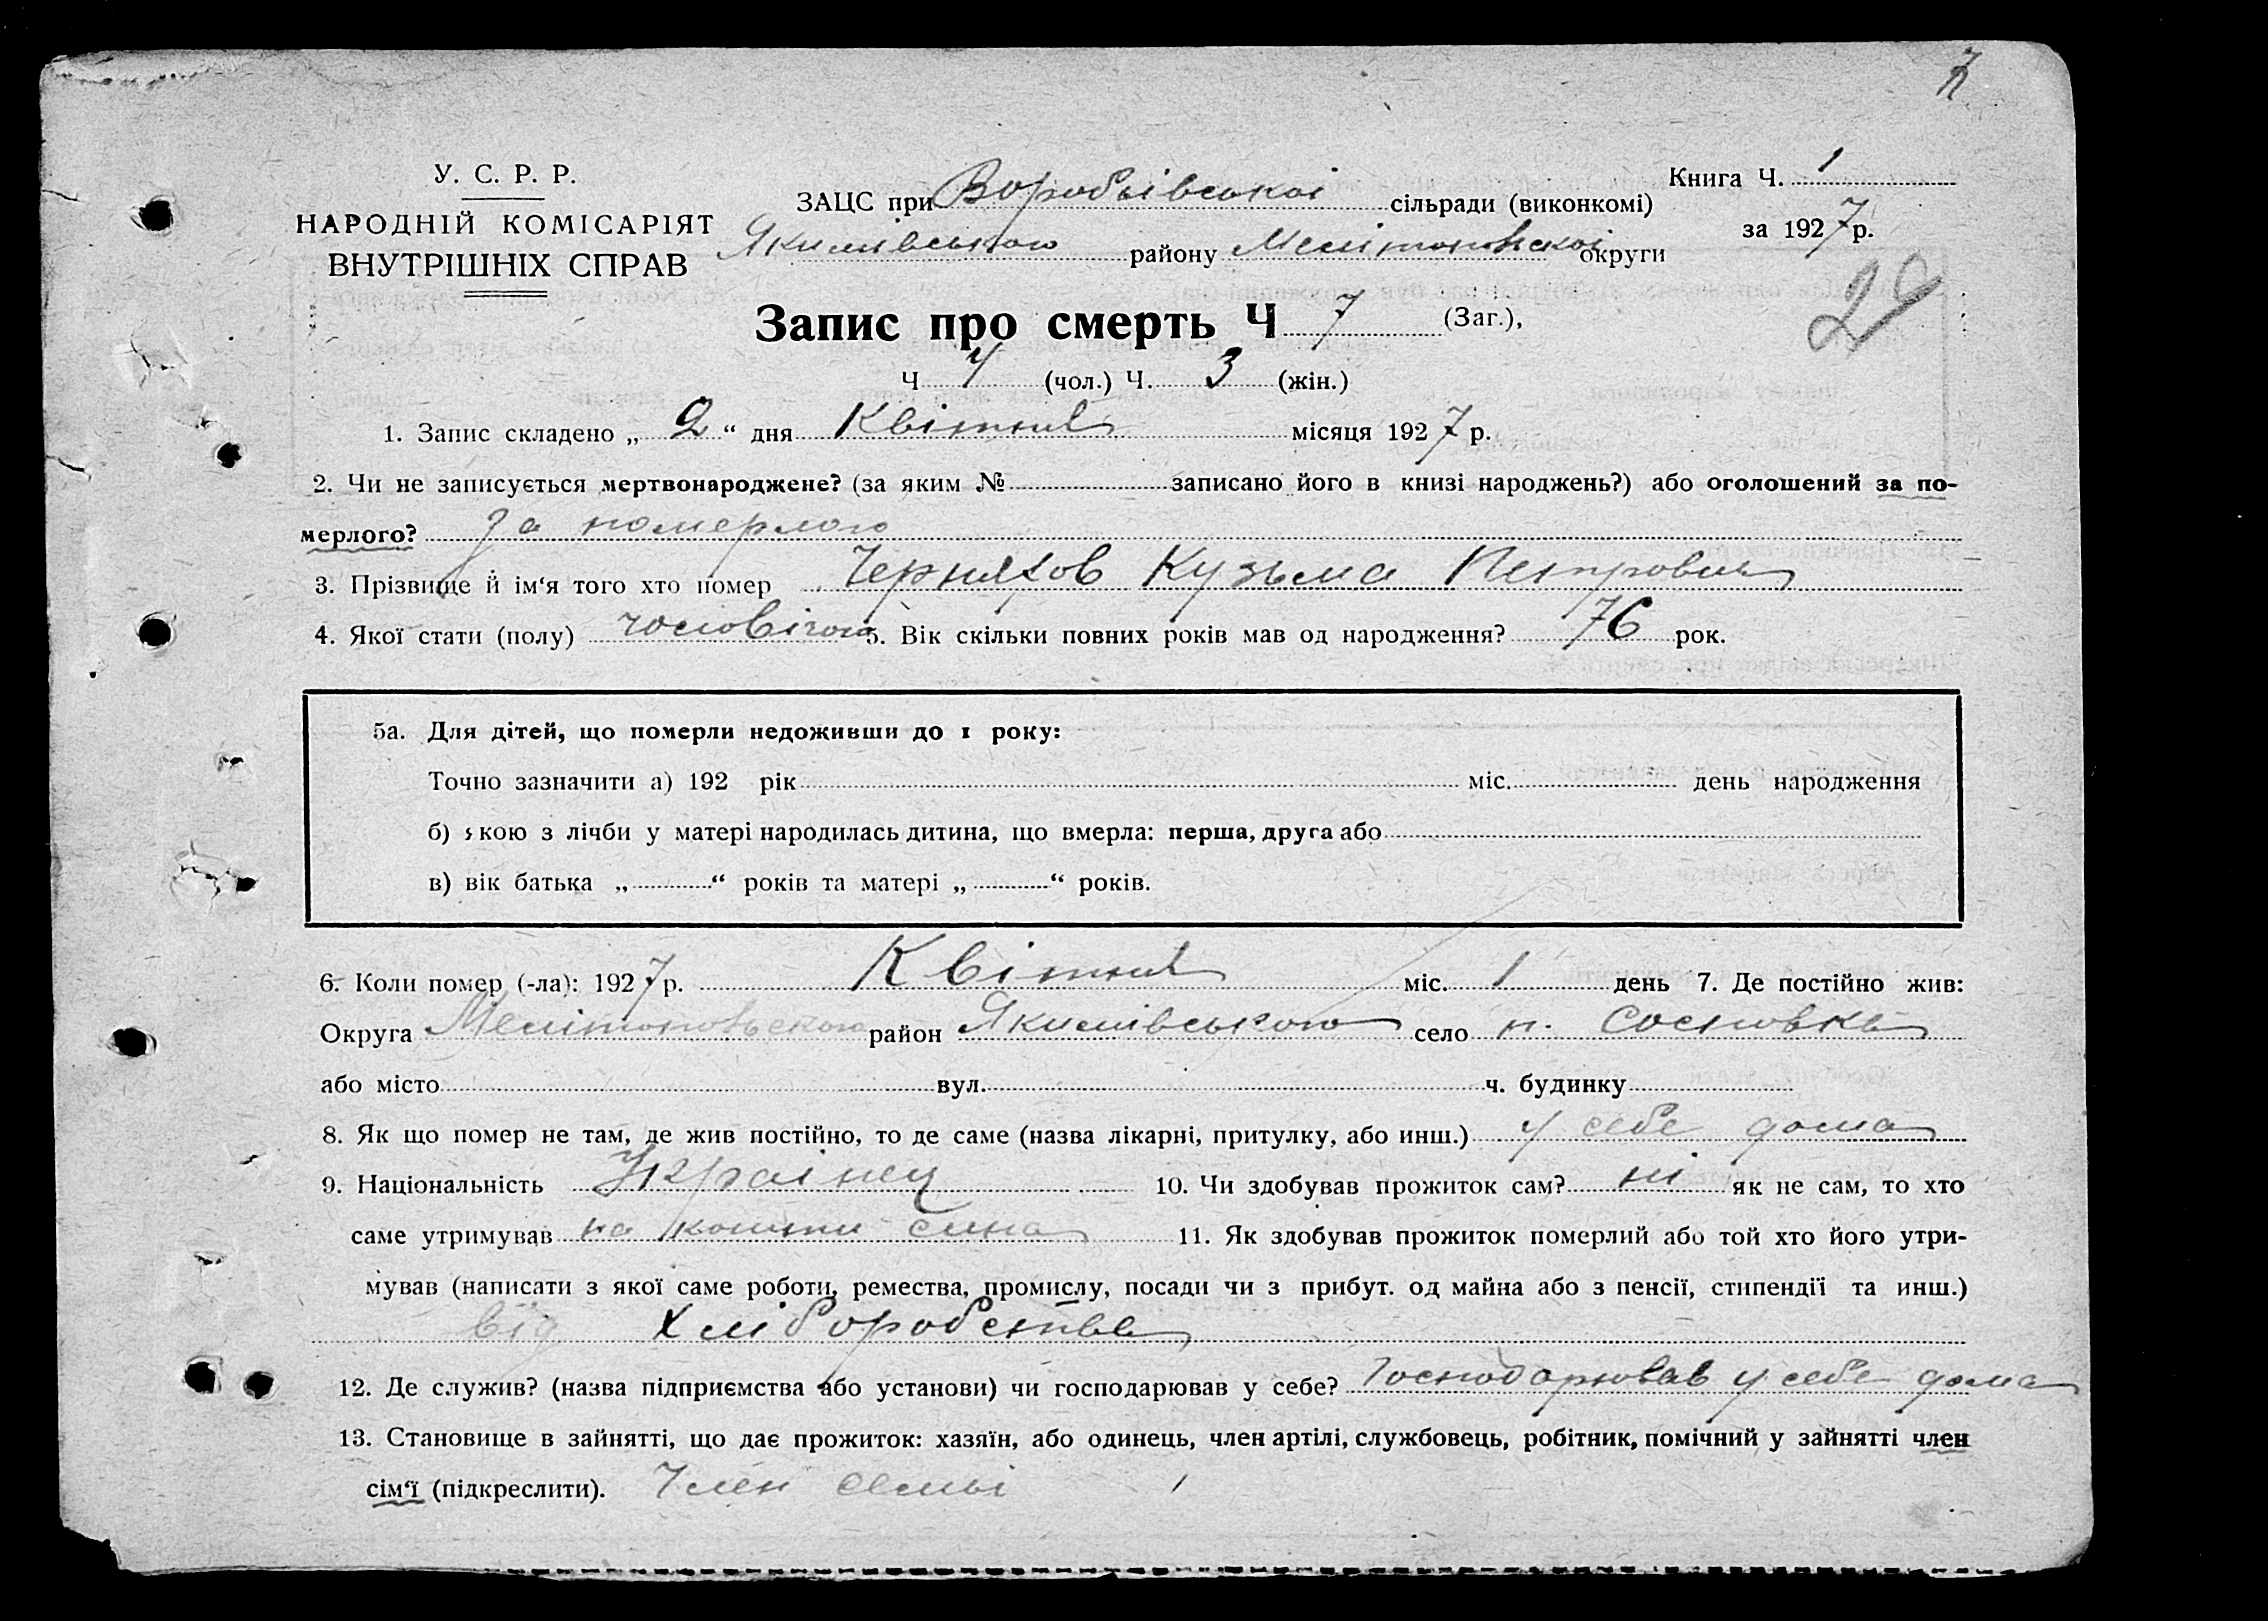 7
У. С. Р. Р.
НАРОДНІЙ КОМІСАРІЯТ
ВНУТРІШНІХ СПРАВ
ЗАЦС при Воробьівської сільради (виконкомі)
Якимівського району Мелітопольскої округи
Книга Ч. 1
за 1927 р.
Запис про смерть Ч 7 (Заг.),
Ч 4 (чол.) Ч. 3 (жін.)
1. Запис складено „ 2 “ дня Квітня місяця 1927 р.
2. Чи не записується мертвонароджене? (за яким № записано його в книзі народжень?) або оголошений за по-
мерлого? за померлого
3. Прізвище й ім‘я того хто помер Черняхов Кузьма Петрович
4. Якої стати (полу) чоловічого 5. Вік скільки повних років мав од народження? 76 рок.
5а. Для дітей, що померли недоживши до 1 року:
Точно зазначити а) 192 рік міс. день народження
б) якою з лічби у матері народилась дитина, що вмерла: перша, друга або
в) вік батька „ “ років та матері „ “ років.
6. Коли помер (-ла): 1927 р. Квітня міс. 1 день 7. Де постійно жив:
Округа Мелітопольского район Якимівського село п. Сосновка
або місто вул. ч. будинку
8. Як що помер не там, де жив постійно, то де саме (назва лікарні, притулку, або инш.) у себе дома
9. Національність Українец 10. Чи здобував прожиток сам? ні як не сам, то хто
саме утримував на кошти сина 11. Як здобував прожиток померлий або той хто його утри-
мував (написати з якої саме роботи, ремества, промислу, посади чи з прибут. од майна або з пенсії, стипендії та инш.)
від хлі­боробства
12. Де служив? (назва підприємства або установи) чи господарював у себе? Господарював у себе дома
13. Становище в зайнятті, що дає прожиток: хазяїн, або одинець, член артілі, службовець, робітник, помічний у зайнятті член
сім‘ї (підкреслити). Член семьі